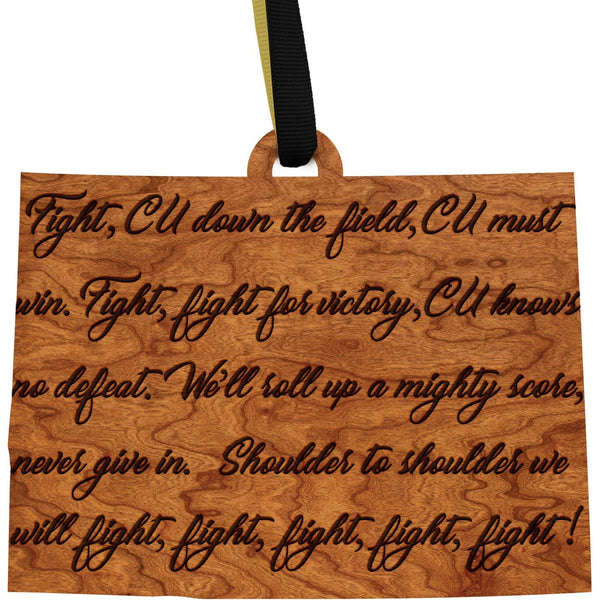 Fight, CU down the field, CU must
win. Fight, fight for victory, CU knows
no defeat. We'll roll up a mighty score,
never give in. Shoulder to shoulder we
will fight, fight, fight, fight, fight!